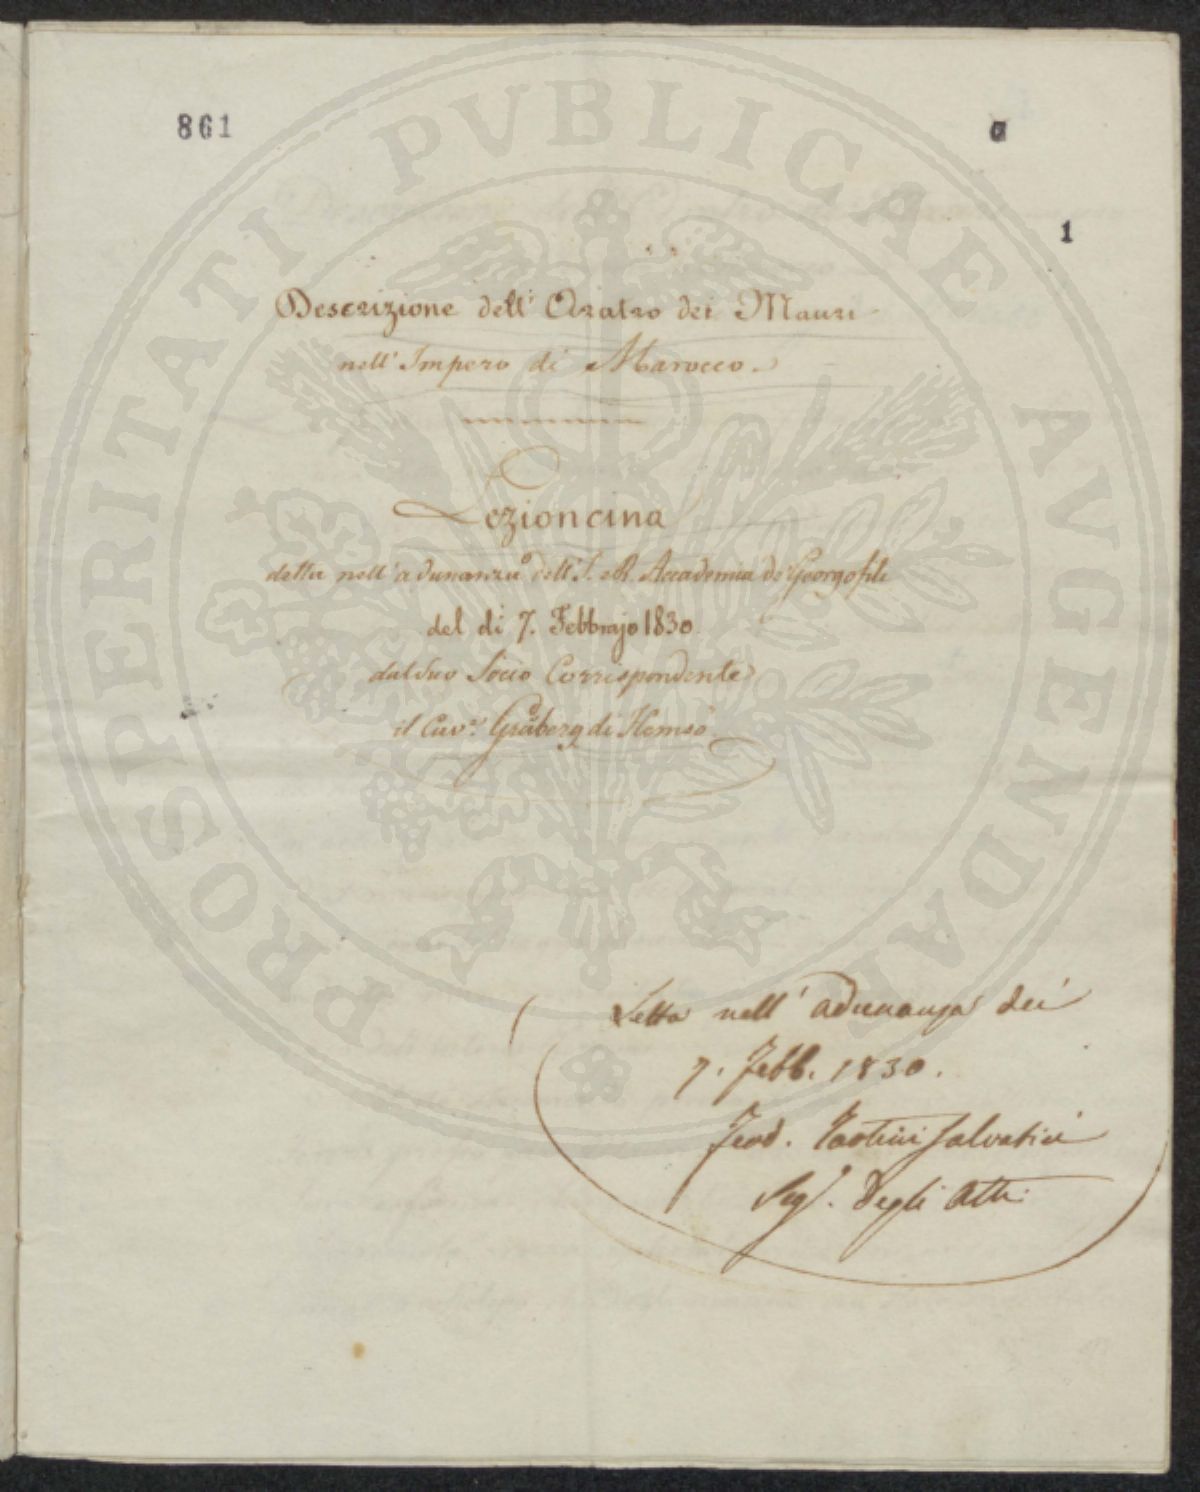 PROSPERITATI PVBLICAE AVGENDAE
861
a
1
Descrizione dell' Aratro dei Mauri
nell' Impero di Marocco.
Lezioncina
detta nell' adunanza dell' I. e R. Accademia de' Georgofili
del dì 7. Febbrajo 1830.
dal suo Socio Corrispondente
il Cav.e Gråberg di Hemsö.
Letta nell' adunanza dei
7. Febb. 1830.
Ferd. Tartini Salvatici
Seg.o degli Atti